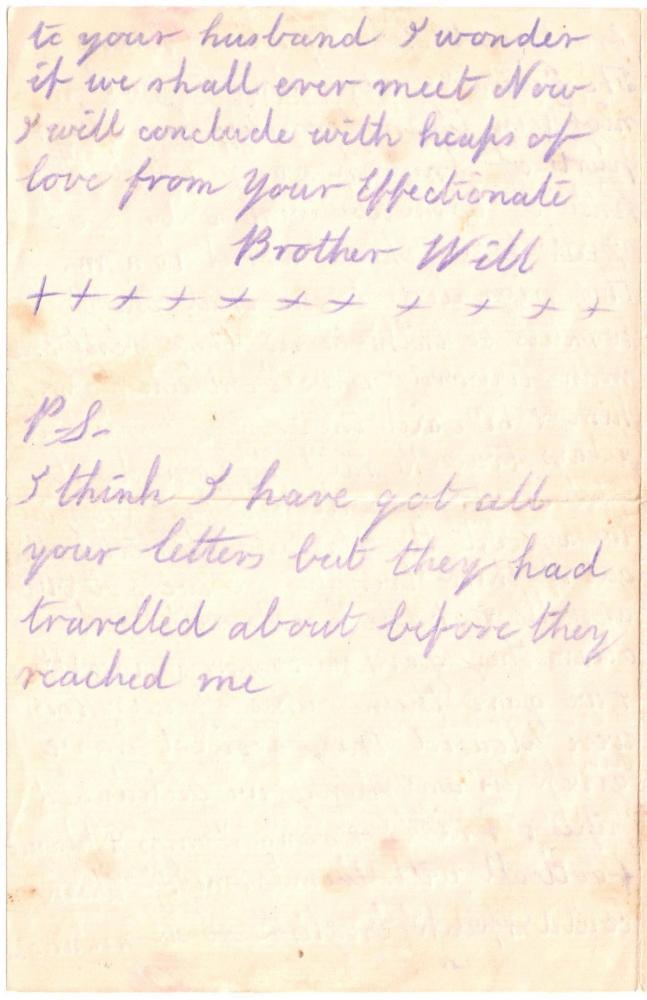 to your husband I wonder
if we shall ever meet Now
I will conclude with heaps of
love from Your Effectionate
Brother Will
+ + + + + + + + + + +
P.S.
I think I have got all
your letters but they had
travelled about before they
reached me